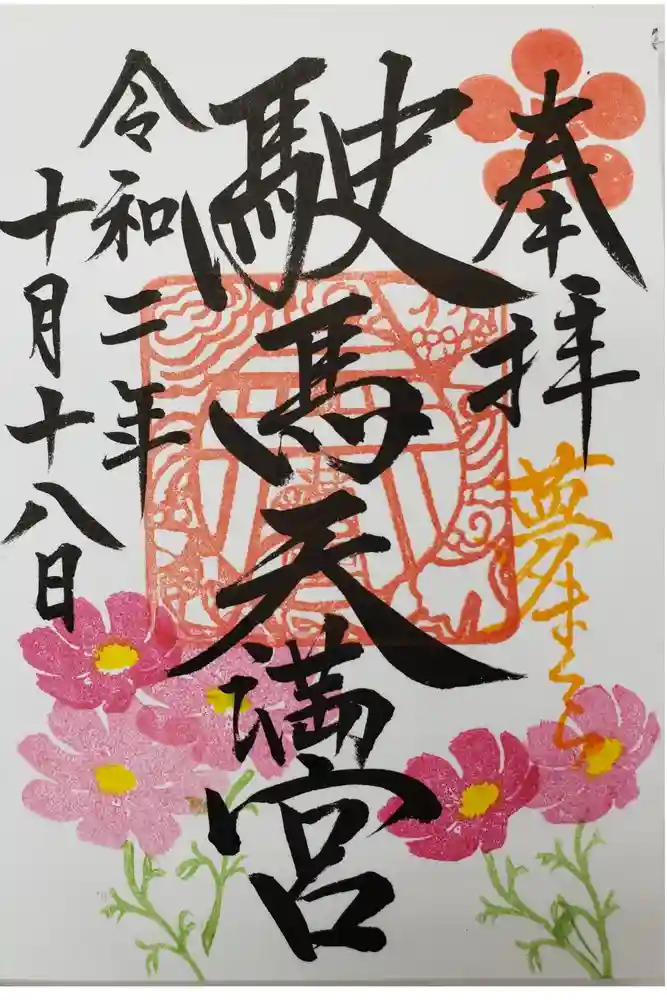 奉拝
夢まくら
駛馬天満宮
令和二年
十月十八日